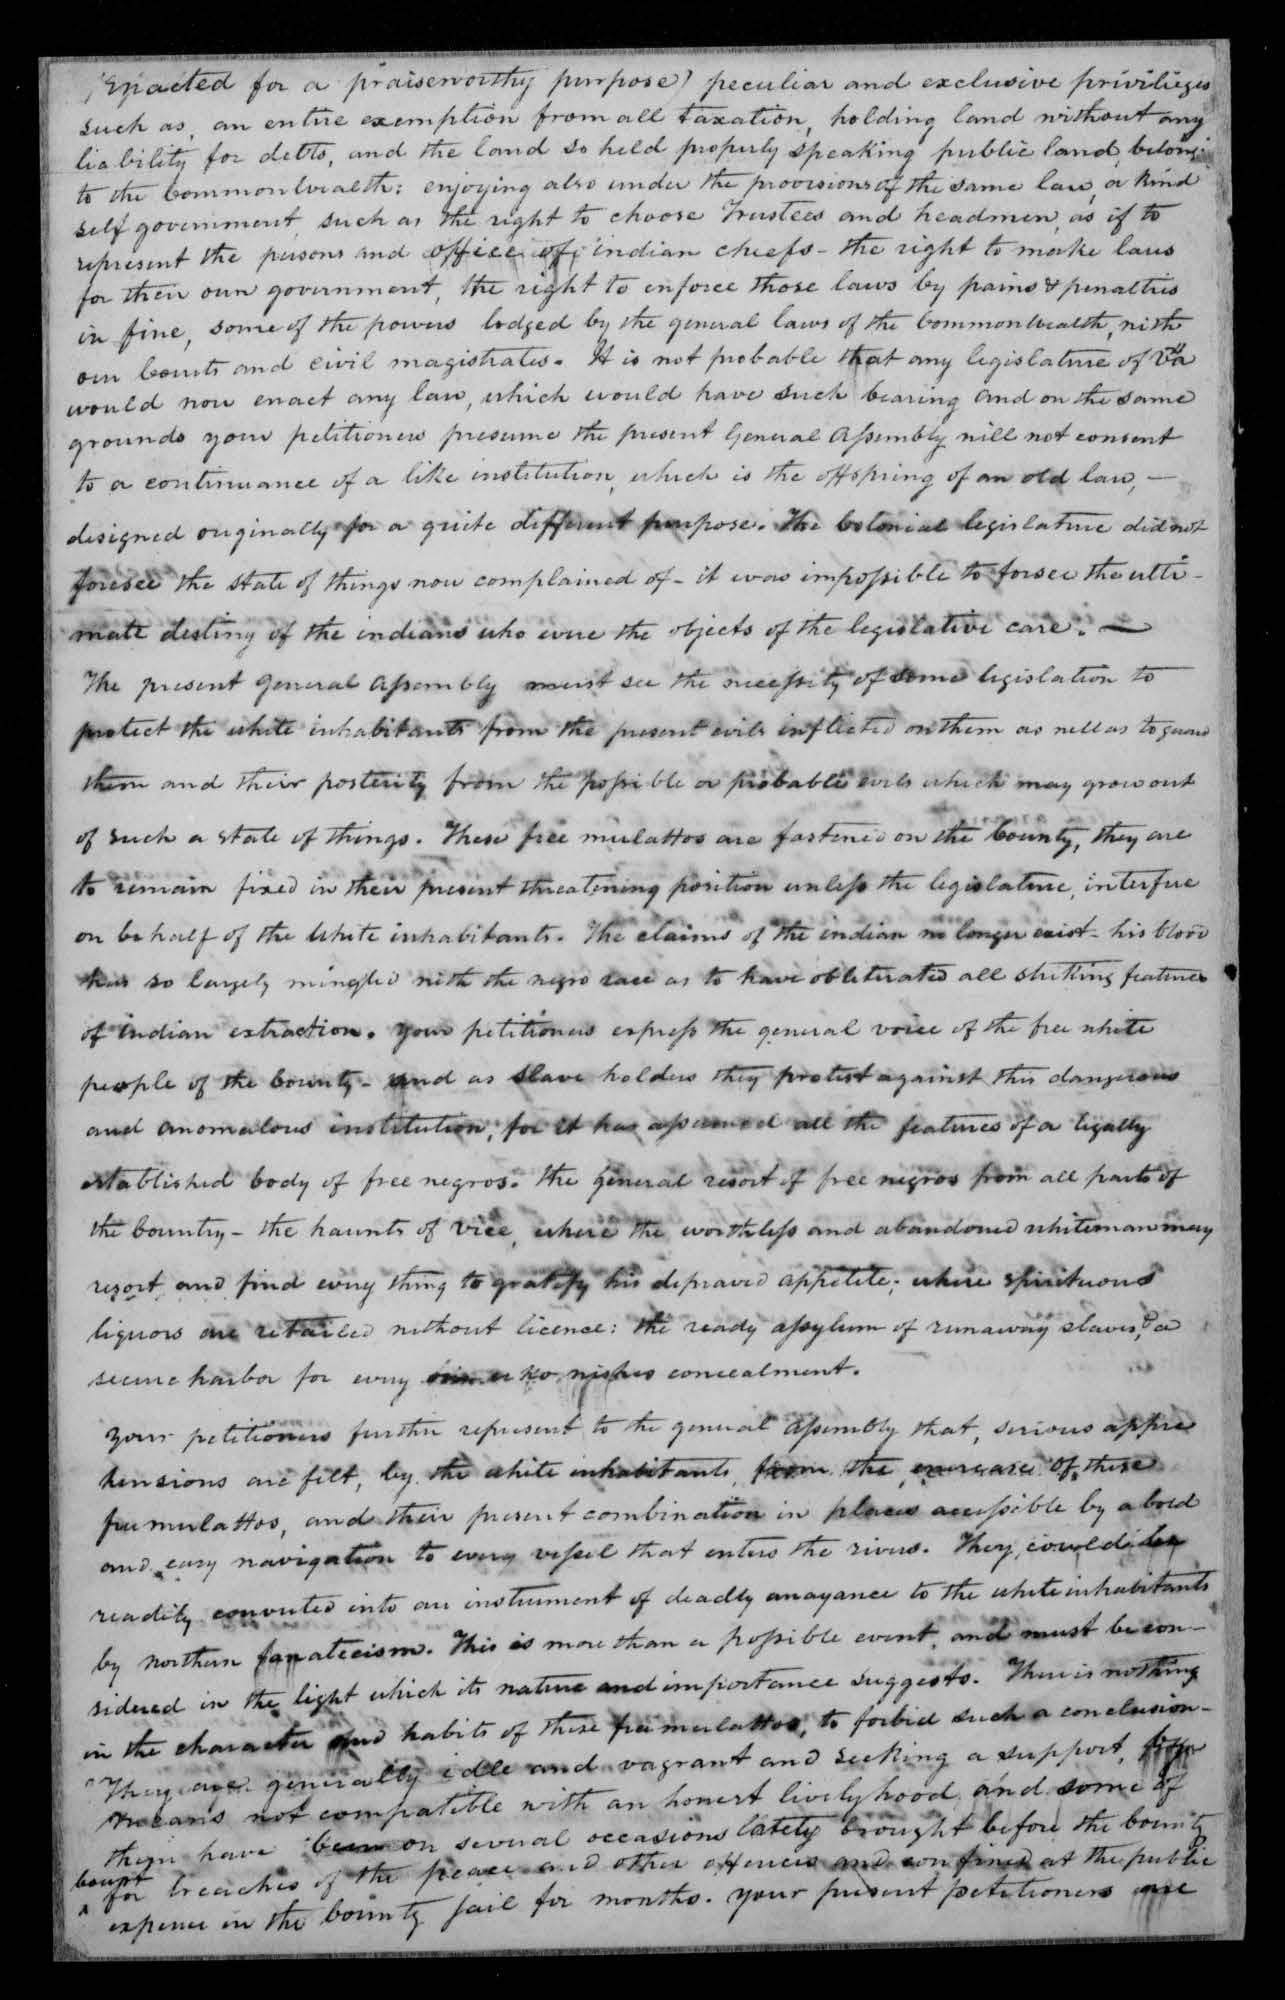 (Enacted for a praiseworthy purpose) peculiar and exclusive priviliges
such as, an entire exemption from all taxation, holding land without any
liability for debts, and the land so held properly speaking public land, belong
to the Commonwealth: enjoying also under the provisions of the same law, a kind
self government, such as the right to choose Trustees and headmen, as if to
represent the persons and office of indian chiefs - the right to make laws
for their own government, the right to enforce those laws by pains & penalties
in fine, some of the powers lodged by the general laws of the Commonwealth, with
our Courts and civil magistrates. It is not probable that any legislature of Va
would now enact any law, which would have such bearing and on the same
grounds your petitioners presume the present General Assembly will not consent
to a continuance of a like institution, which is the offspring of an old law, —
designed originally for a quite different purpose. The Colonial legislature did not
foresee the state of things now complained of - it was impossible to forsee the ulti-
mate destiny of the indians who were the objects of the legislative care. —
The present General Assembly must see the necessity of some legislation to
protect the white inhabitants from the present evils inflicted on them as well as to guard
them and their posterity from the possible or probable evils which may grow out
of such a state of things. These free mulattos are fastened on the County, they are
to remain fixed in their present threatening position unless the legislature, interfere
on behalf of the white inhabitants. The claims of the indian no longer exist - his blood
has so largely mingled with the negro race as to have obliterated all striking features
of indian extraction. Your petitioners express the general voice of the free white
people of the County - and as slave holders they protest against this dangerous
and anomalous institution, for it has assumed all the features of a legally
established body of free negros. the general resort of free negros from all parts of
the Country - the haunts of vice, where the worthless and abandoned whiteman may
resort and find every thing to gratify his depraved appetite; where spirituous
liquors are retailed without licence: the ready assylum of runaway slaves, & a
secure harbor for every who wishes concealment.
Your petitioners further represent to the general Assembly that, serious appre
hensions are felt, by the white inhabitants, from the increase of these
free mulattos, and their present combination in places accessible by a bold
and easy navigation to every vessel that enters the rivers. They could be
readily converted into an instrument of deadly anayance to the white inhabitants
by northern fanaticism. This is more than a possible event, and must be con-
sidered in the light which its nature and importance suggests. There is nothing
in the character and habits of these free mulattos, to forbid such a conclusion -
They are generally idle and vagrant and seeking a support, by
means not compatible with an honest livelyhood and some of
them have been on several occasions lately brought before the County
Court for breaches of the peace and other offences and confined at the public
expence in the County jail for months. Your present petitioners are